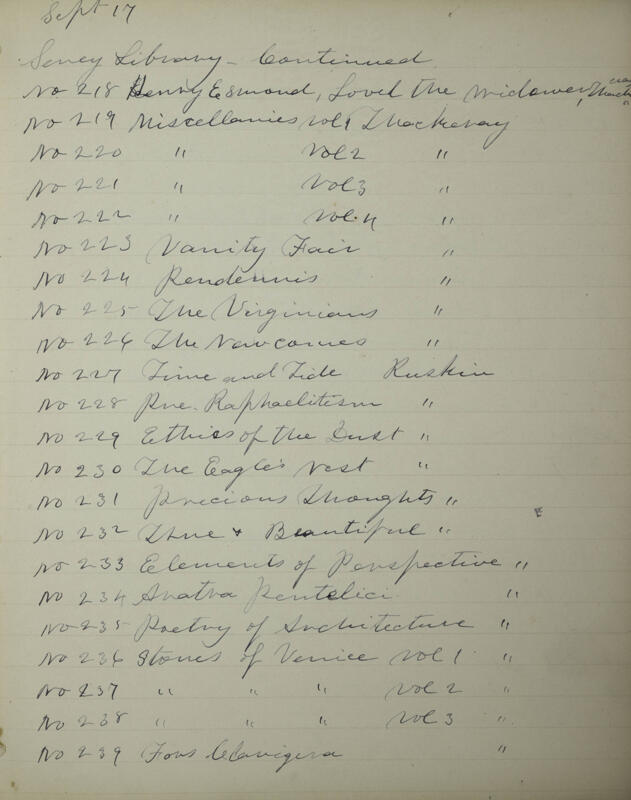 Sept 17
Seney Library - Continued
No 218 Henry Esmond, Lovel the Widower,
No 219 Miscellanies vol 1 Thackeray
No 220 " Vol 2 "
No 221 " Vol 3 "
No 222 " Vol. 4 "
No 223 Vanity Fair "
No 224 Pendennis "
No 225 The Virginians "
No 226 The Newcomes "
No 227 Time and Tide Ruskin
No 228 Pre. Raphaelitism "
No 229 Ethics of the Dust "
No 230 The Eagle's Nest "
No 231 Precious Thoughts "
No 232 True + Beautiful "
No 233 Elements of Perspective "
No 234 Aratra Pentelici "
No 235 Poetry of Architecture "
No 236 Stones of Venice Vol 1 "
No 237 " " " Vol 2 "
No 238 " " " Vol 3 "
No 239 Fors Clavigera "